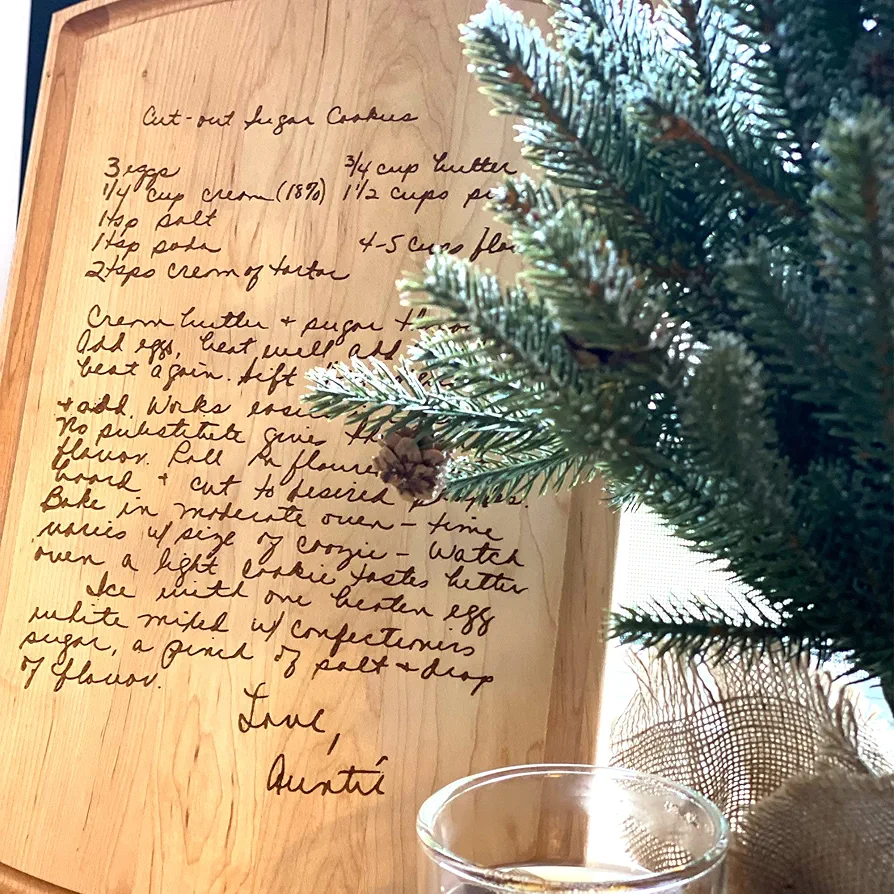 Cut-out Sugar Cookies
3 eggs 3/4 cup butter
1/4 cup cream (18%) 1 1/2 cups
1 tsp salt
1 tsp soda 4-5 cups
2 tsps cream of tartar
Cream butter + sugar
Add egg, beat well add
beat again. Sift
+ add. Works
No substitute gives
flavor. Roll in
board + cut to desired
Bake in moderate oven - time
varies w/ size of coozie - Watch
oven a light cookie tastes better
Ice with one beaten egg
white mixed w/ confectioners
sugar, a pinch of salt + drop
of flavor.
Love,
Auntie